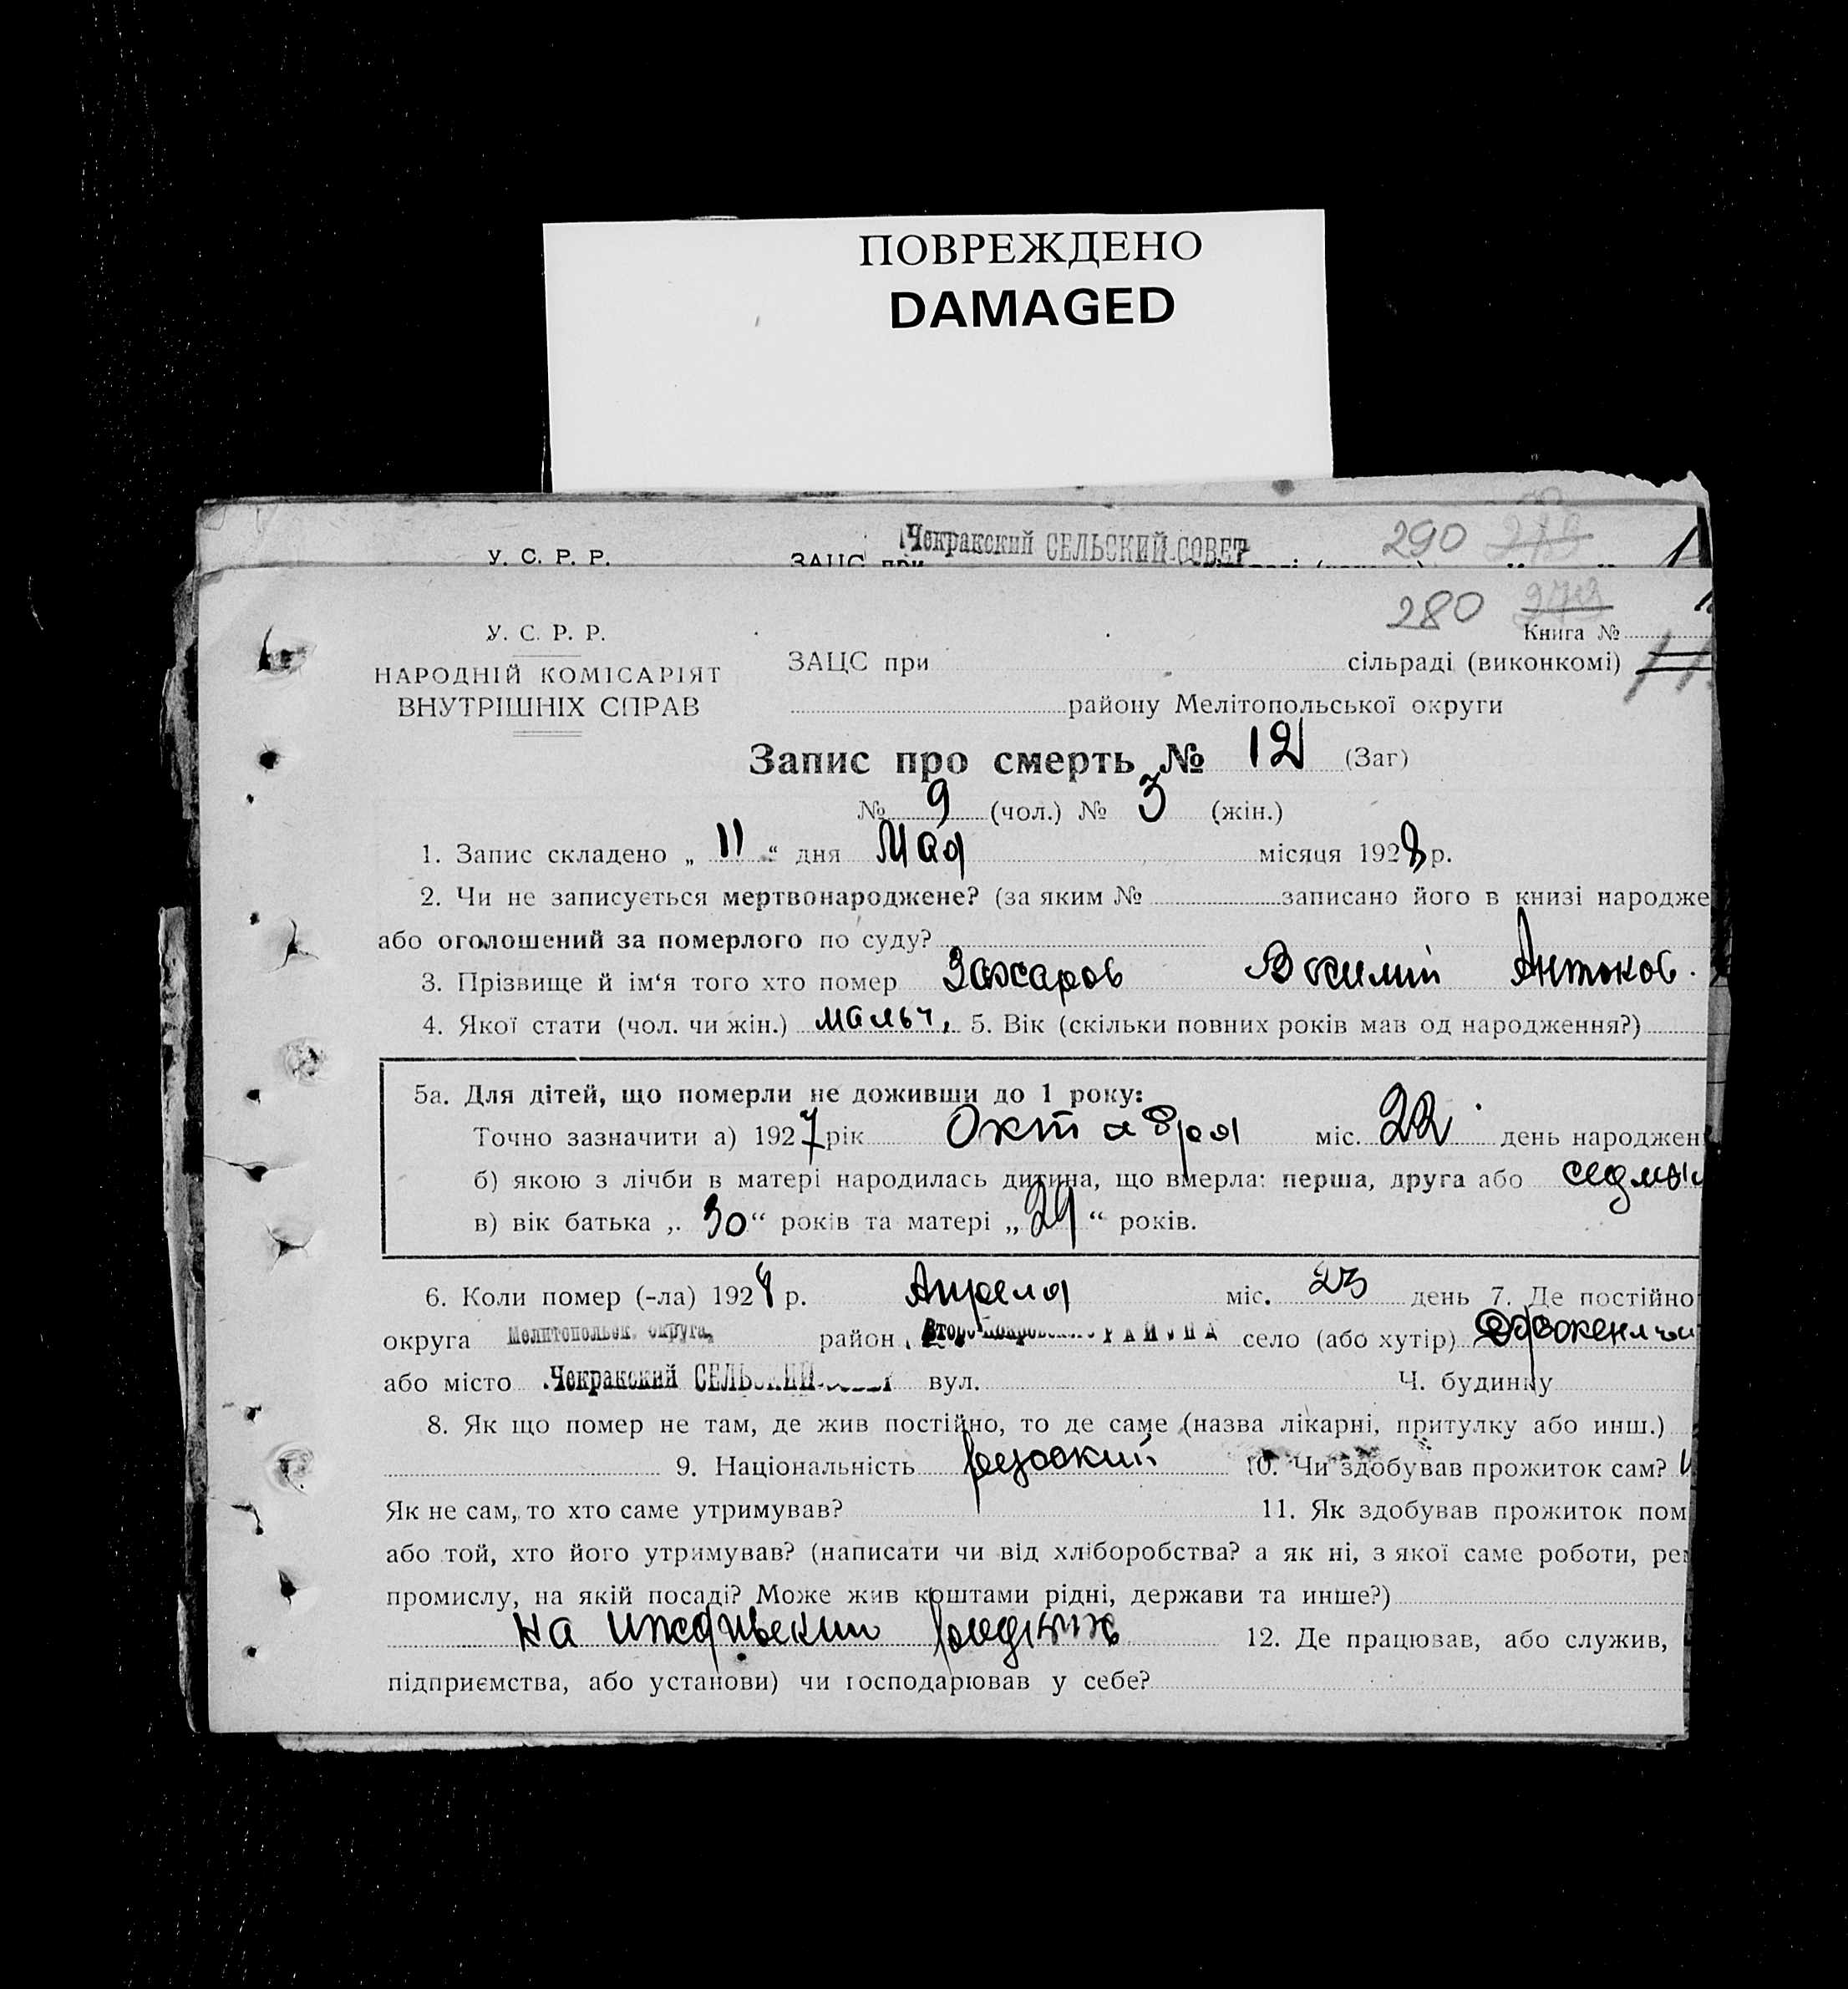 ПОВРЕЖДЕНО
DAMAGED
Чекракский СЕЛЬСКИЙ СОВЕТ 290
У. С. Р. Р. ЗАЦС при
280 273
У. С. Р. Р. Книга №
НАРОДНІЙ КОМІСАРІЯТ ЗАЦС при сільраді (виконкомі)
ВНУТРІШНІХ СПРАВ району Мелітопольської округи
Запис про смерть № 12 (Заг)
№ 9 (чол.) № 3 (жін.)
1. Запис складено „ 11 “ дня Мая місяця 1928 р.
2. Чи не записується мертвонароджене? (за яким № записано його в книзі народже
або оголошений за померлого по суду?
3. Прізвище й ім‘я того хто помер Захаров Василий Антонов.
4. Якої стати (чол. чи жін.) мальч. 5. Вік (скільки повних років мав од народження?)
5а. Для дітей, що померли не доживши до 1 року:
Точно зазначити а) 1927 рік Октября міс. 22 день народжен
б) якою з лічби в матері народилась дитина, що вмерла: перша, друга або седмы
в) вік батька „ 30 “ років та матері „ 29 “ років.
6. Коли помер (-ла) 1928 р. Апреля міс. 23 день 7. Де постійно
округа Мелитопольск. округа, район Второ-Покровского РАЙОНА село (або хутір)
або місто Чекракский СЕЛЬСКИЙ вул. Ч. будинку
8. Як що помер не там, де жив постійно, то де саме (назва лікарні, притулку або инш.)
9. Національність русский 10. Чи здобував прожиток сам?
Як не сам, то хто саме утримував? 11. Як здобував прожиток пом
або той, хто його утримував? (написати чи від хліборобства? а як ні, з якої саме роботи, ре
промислу, на якій посаді? Може жив коштами рідні, держави та инше?)
на родных 12. Де працював, або служив,
підприємства, або установи) чи господарював у себе?